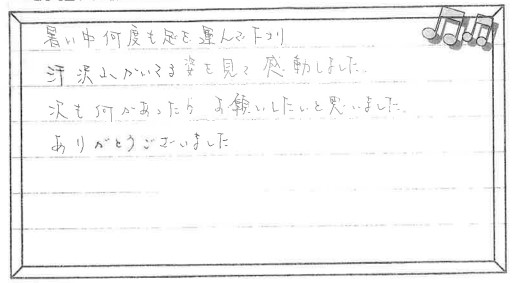 暑い中何度も足を運んで下さり
汗沢山かいてる姿を見て感動しました。
次も何かあったら お願いしたいと思いました。
ありがとうございました